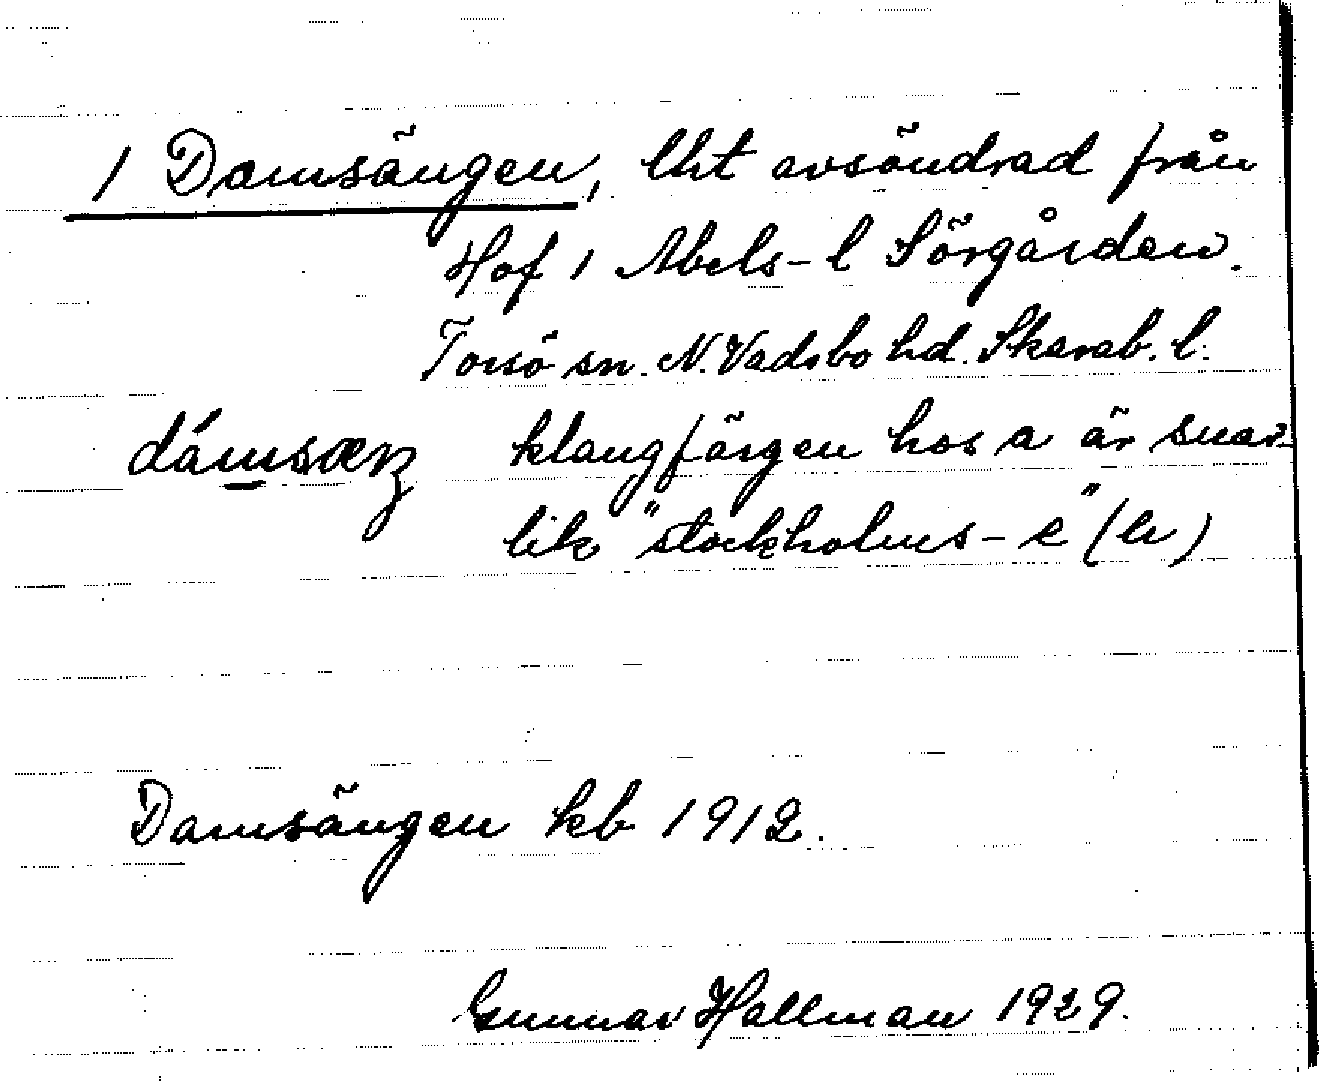 1 Damsängen, lht avsöndrad från
Hof 1 Abels-l Sörgården.
Torsö sn. N. Vadsbo hd. Skarab. l.
dámsæŋ klangfärgen hos a är snar-
lik "stockholms-e" (œ)
Damsängen kb 1912.
Gunnar Hallman 1929.